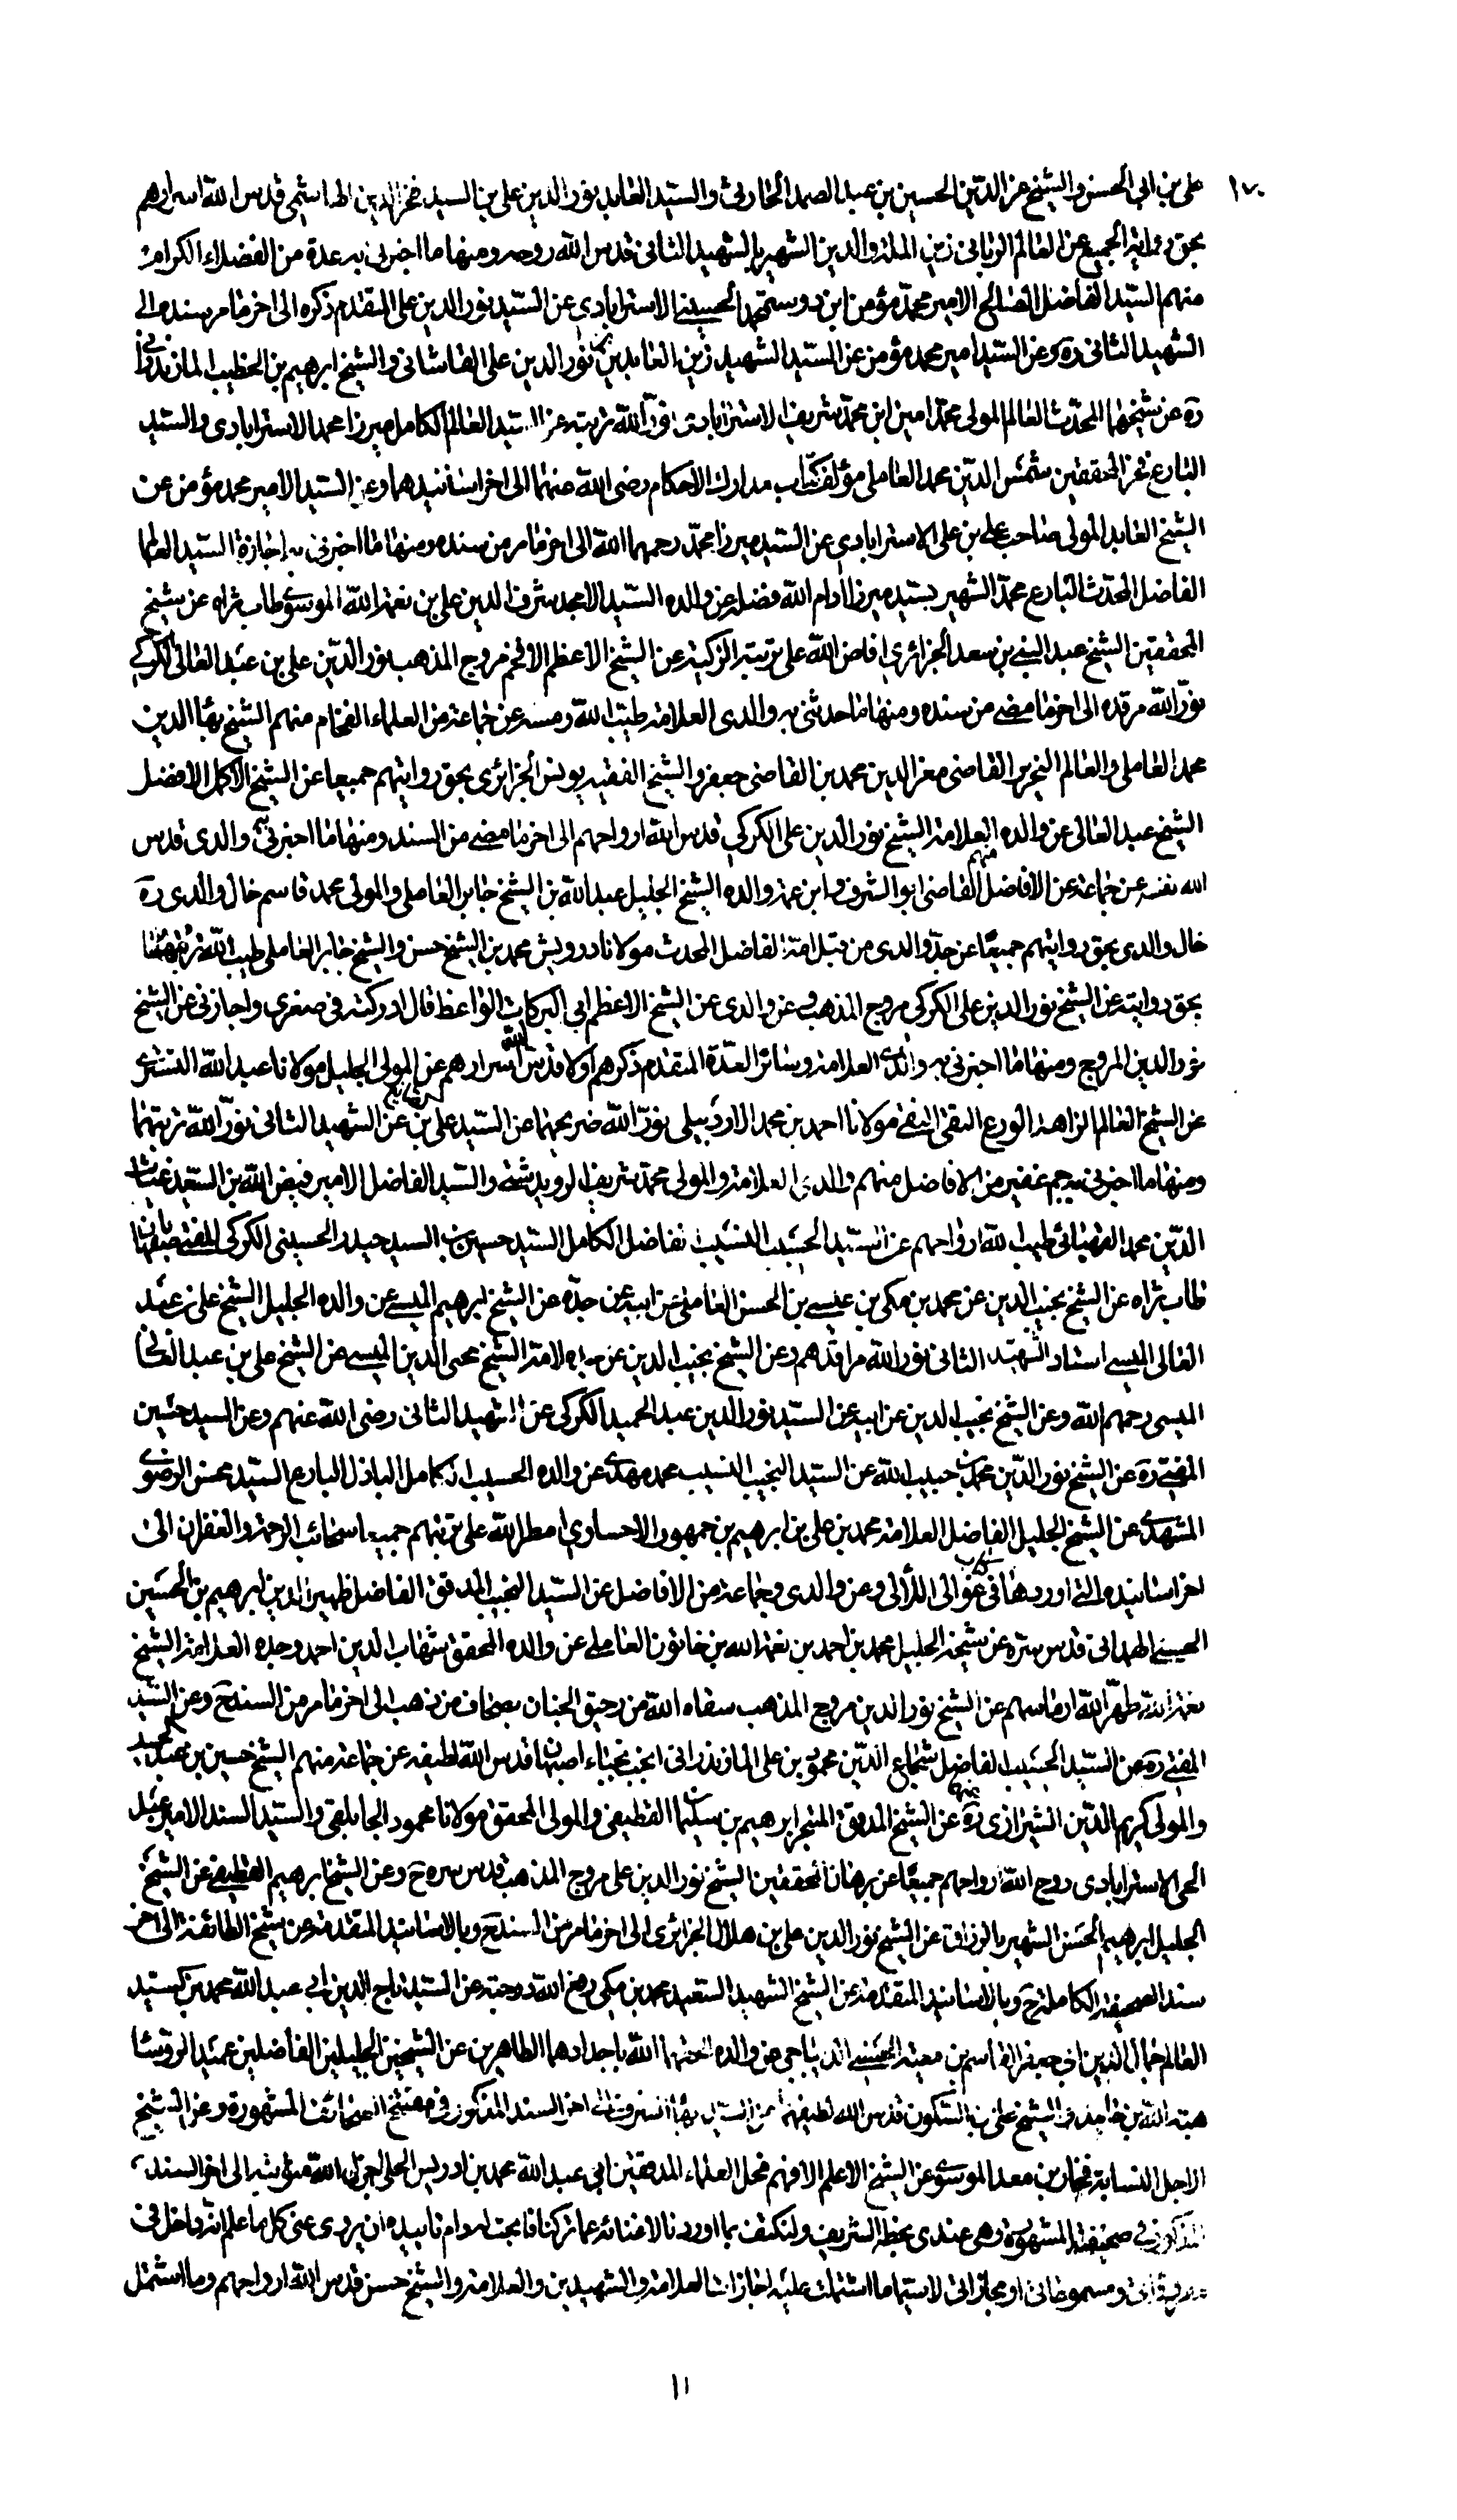 ١٧٠
علي بن ابي الحسن والشيخ عز الدين الحسين بن عبد الصمد الحارثى والسيد العابد نور الدين على بن السيد فخر الدين الهاشمى قدس الله اسرارهم
بحق رواية الجميع عن العالم الربانى زين الملة والدين الشهير بالشهيد الثانى قدس الله روحه ومنها ما اخبرنى به عدة من الفضلاء الكرام
منهم السيد الفاضل الصالح الامير محمد مؤمن ابن دوست محمد الحسيني الاسترابادي عن السيد نور الدين على المتقدم ذكره الى اخر ما مر سنده الى
الشهيد الثانى ره وعن السيد امير محمد مؤمن عن السيد الشهيد زين العابدين بن نور الدين على القاشانى والشيخ ابرهيم بن الخطيب المازندراني
ره عن شيخهما المحدث العالم المولى محمد امين ابن محمد شريف الاسترابادى نور الله تربته عن السيد العالم الكامل ميرزا محمد الاسترابادى والسيد
البارع فخر المحققين شمس الدين محمد العاملى مؤلف كتاب مدارك الاحكام رضى الله عنهما الى اخر اسانيدهما وعن السيد الامير محمد مؤمن عن
الشيخ العابد المولى صاحب على بن على الاسترابادي عن السيد ميرزا محمد رحمهما الله الى اخر ما مر من سنده ومنها ما اخبرنى به اجازة السيد العالم
الفاضل المحدث البارع محمد الشهير بسيد ميرزا ادام الله فضله عن والده السيد الامجد شرف الدين على بن نعمة الله الموسوي طاب ثراه عن شيخ
المحققين الشيخ عبد النبي بن سعد الجزائري افاض الله على تربته الزكية عن الشيخ الاعظم الافخم مروج المذهب نور الدين على بن عبد العالى الكركي
نور الله مرقده الى اخر ما مضى من سنده ومنها ما حدثنى به والدى العلامة طيب الله رمسه عن جماعة من العلماء الفخام منهم الشيخ بهاء الدين
محمد العاملى والعالم النحرير القاضى معز الدين محمد بن القاضى جعفر والشيخ الفقيه يونس الجزائرى بحق روايتهم جميعا عن الشيخ الاكمل الافضل
الشيخ عبد العالى عن والده العلامة الشيخ نور الدين على الكركي قدس الله ارواحهم الى اخر ما مضى من السند ومنها ما اخبرنى به والدى قدس
الله نفسه عن جماعة من الافاضل منهم القاضى ابو الشرف وابن عمة والده الشيخ الجليل عبد الله بن الشيخ جابر العاملى والمولى محمد قاسم خال والدى ره
خال والدى بحق روايتهم جميعا عن جد والدى من قبل امه الفاضل المحدث مولانا درويش محمد بن الشيخ حسن والشيخ جابر العاملى طيب الله تربتهما
بحق روايته عن الشيخ نور الدين على الكركي مروج المذهب وعن والدى عن الشيخ الاعظم ابى البركات الواعظ قال ادركته فى صغرى واجازنى عن الشيخ
نور الدين المروج ومنها ما اخبرنى به والدى العلامة وسائر العدة المتقدم ذكرهم اولا قدس الله اسرارهم عن المولى الجليل مولانا عبد الله التسترى
عن الشيخ العالم الزاهد الورع التقى النقى مولانا احمد بن محمد الاردبيلى نور الله ضريحهما عن السيد على بن الصايغ عن الشهيد الثانى نور الله تربتهما
ومنها ما اخبرنى به جم غفير من الافاضل منهم والدى العلامة والمولى محمد شريف الرويدشتى والسيد الفاضل الامير فيض الله بن السيد غياث
الدين محمد القهبائى طيب الله ارواحهم عن السيد الحسيب النسيب الفاضل الكامل السيد حسين بن السيد حيدر الحسينى الكركى المفتى باصفهان
طاب ثراه عن الشيخ نجيب الدين عن محمد بن مكى بن عيسى بن الحسن العاملى عن ابيه عن جده عن الشيخ ابرهيم الميسى عن والده الجليل الشيخ على بن عبد
العالى الميسى استاد الشهيد الثانى نور الله مراقدهم وعن الشيخ نجيب الدين عن جده لامه الشيخ محيى الدين الميسى عن الشيخ على بن عبد العالى
الميسى رحمهم الله وعن الشيخ نجيب الدين عن ابيه عن السيد نور الدين عبد الحميد الكركى عن الشهيد الثانى رضى الله عنهم وعن السيد حسين
المفتى ره عن الشيخ نور الدين محمد بن حبيب الله عن السيد النجيب النسيب محمد مهدى عن والده الحسيب الكامل الباذل البارع السيد محسن الرضوى
المشهدى عن الشيخ الجليل الفاضل العلامة محمد بن على بن ابرهيم بن جمهور الاحساوي امطر الله على تربتهم جميعا سحائب الرحمة والغفران الى
اخر اسانيده التى اوردها فى كتاب غوالى اللآلى وعن والدى وجماعة من الافاضل عن السيد النجيب المدقق الفاضل ظهير الدين ابرهيم بن الحسين
الحسينى الهمدانى قدس سره عن شيخه الجليل محمد بن احمد بن نعمة الله بن خاتون العاملى عن والده المحقق شهاب الدين احمد وجده العلامة الشيخ
نعمة الله طهر الله ارماسهم عن الشيخ نور الدين مروج المذهب سقاه الله من رحيق الجنان بصحاف من ذهب الى اخر ما مر من السند ح وعن السيد
المفتى ره عن السيد الحسيب الفاضل شجاع الدين محمود بن على المازندرانى انجب نجباء اصبهان قدس الله لطيفه عن جماعة منهم الشيخ حسين بن عبد الحميد
والمولى كريم الدين الشيرازى ره عن الشيخ المدقق المتبحر ابرهيم بن سليمان القطيفى والمولى المحقق مولانا محمود الجابلقى والسيد السند الامير عبد
الحى الاسترابادى روح الله ارواحهم جميعا عن برهان المحققين الشيخ نور الدين على مروج المذهب قدس سره ح وعن الشيخ ابرهيم القطيفى عن الشيخ
الجليل ابرهيم بن الحسن الشهير بالوراق عن الشيخ نور الدين على بن هلال الجزائرى الى اخر ما مر من السند ح وبالاسانيد المتقدمة عن شيخ الطائفة الى اخر
سند الصحيفة الكاملة ح وبالاسانيد المتقدمة عن الشيخ الشهيد السعيد محمد بن مكى رفع الله درجته عن السيد تاج الدين ابى عبد الله محمد بن السيد
العالم جمال الدين ابى جعفر القاسم بن معية الحسينى الديباجى عن والده الحقهما الله باجدادهما الطاهرين عن الشيخين الجليلين الفاضلين عميد الرؤسا
هبة الله بن حامد والشيخ على بن السكون قدس الله لطيفهما عن السيد بهاء الشرف الى اخر السند المذكور فى مفتتح الصحائف المشهورة وعن الشيخ
الاجل النسابة فخار بن معد الموسوى عن الشيخ الاعلم الافهم فحل العلماء المدققين ابى عبد الله محمد بن ادريس الحلى اجزل الله مثوبته الى اخر السند
المذكور فى صحيفته المشهورة وهى عندى بخطه الشريف ولنكتف بما اوردنا لاغنائه عما تركنا فابحت له دام تاييده ان يروى عنى كل ما علم انه داخل فى
ومسموعاتى او مجازاتى لا سيما ما اشتملت عليه اجازات العلامة والشهيدين والعلامة والشيخ حسن قدس الله ارواحهم وما اشتمل
١١